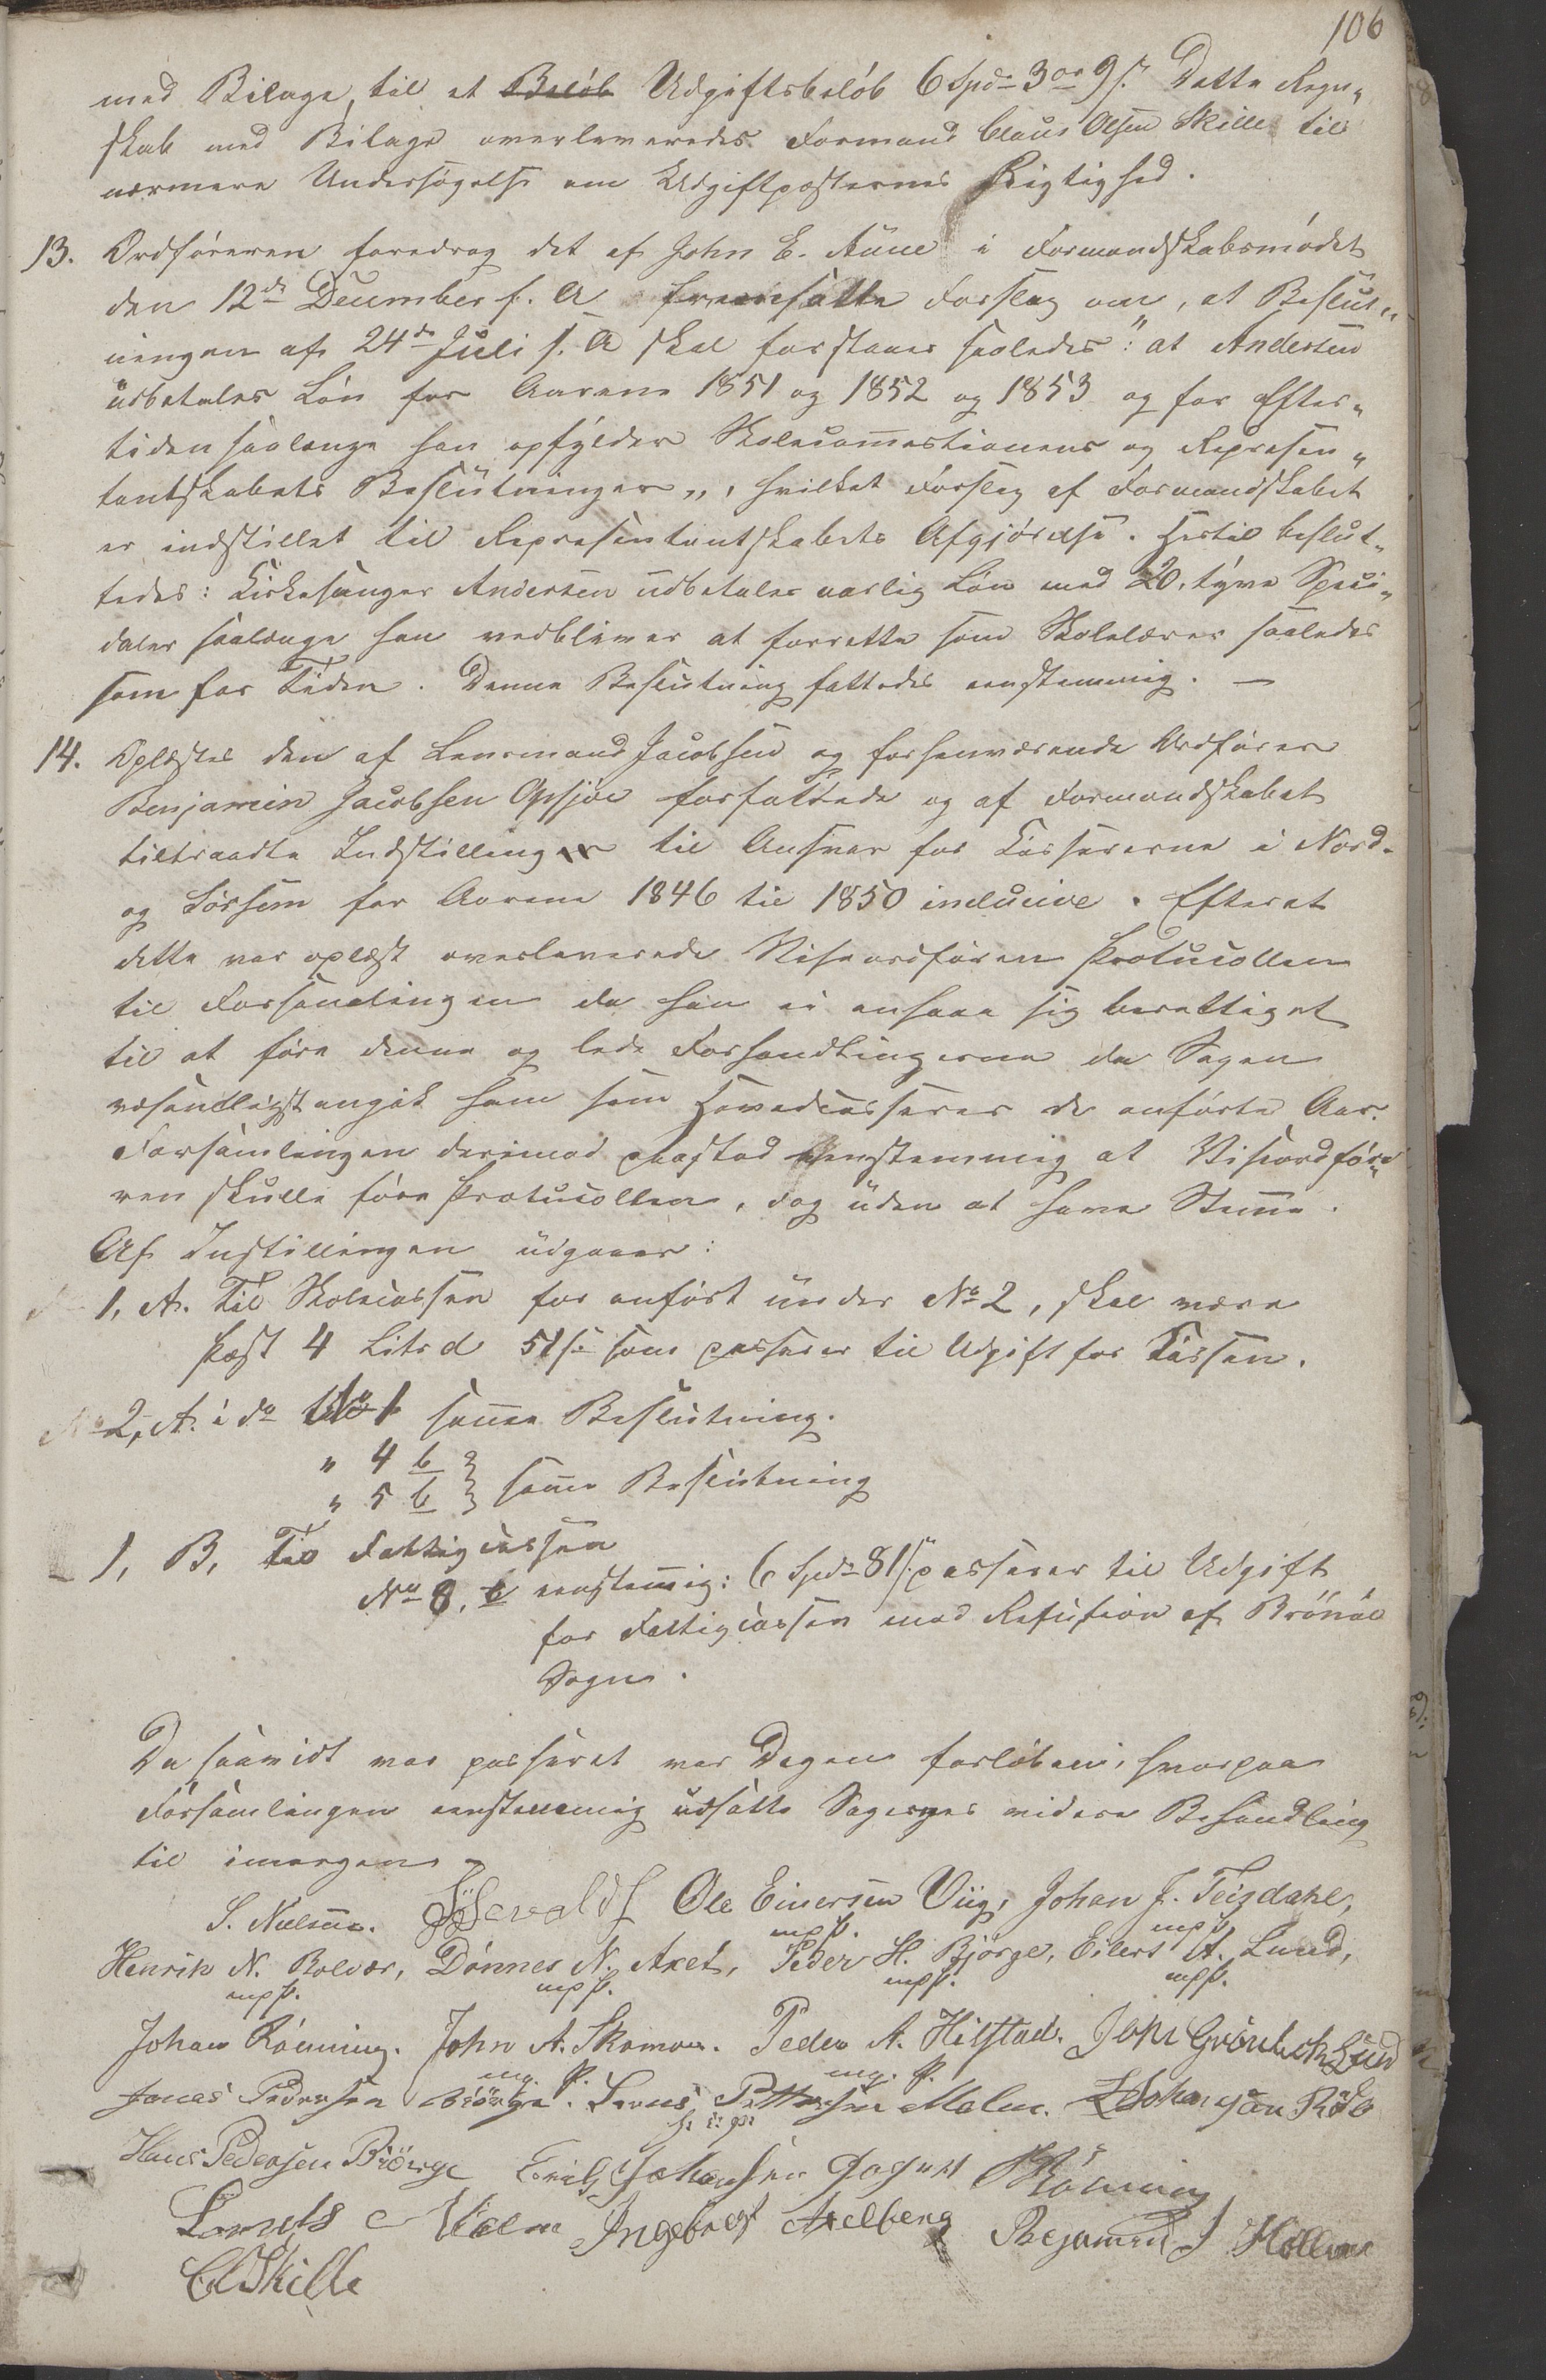 106
med Bilage, til et Beløb Udgiftsbeløb 6 Spd 3 ort 9 s. Dette Regn„
skab med Bilage overleveredes Formand Claus Olsen Skille til
nærmere Undersøgelse om Udgiftposternes Rigtighed.
13. Ordføreren foredrog det af John E. Aune i Formandskabsmødet
den 12de December f. A fremsatte Forslag om, at Beslut„
ningen af 24de Juli f. A skal forstaaes saaledes: "at Andersen
udbetales Løn for Aarene 1851 og 1852 og 1853 og for Efter„
tiden saalænge han opfylder Skolecommissionens og Repræsen„
tantskabets Beslutninger„, hvilket Forslag af Formandskabet
er indstillet til Repræsentantskabets Afgjørelse. Hertil beslut„
tedes: Kirkesanger Andersen udbetales aarlig Løn med 20, tyve Speci„
daler saalænge han vedbliver at forrette som Skolelærer saaledes
som for Tiden. Denne Beslutning fattedes eenstemmig. —
14. Oplæstes den af Lensmand Jacobsen og forhenværende Ordfører
Benjamin Jacobsen Opsjøe forfattede og af Formandskabet
tiltraadte Indstillinger til Ansvar for Kassererne i Nord-
og Sørhem for Aarene 1846 til 1850 inclucive. Efterat
dette var oplæst overleverede Viseordføren Protocollen
til Forsamlingen da han ei ansaae sig berettiget
til at føre denne og lede Forhandlingerne da Sagen
væsendtligst angik ham som Hovedcasserer de anførte Aar.
Forsamlingen derimod paastod eenstemmig at Viseordføre„
ren skulle føre Protocollen, dog uden at have Stemme.
Af Instillingen udgaaer:
No 1, A. Til Skolecassen for anført under No 2, skal være
Post 4 Litr d 51 s. som passerer til Udgift for Kassen.
No 2, A. i do No 1 samme Beslutning.
" 4 b }
" 5 b } samme Beslutning
1, B, Til Fattigcassen
No 8, b eenstemmig: 6 Spd 81 s. passerer til Udgift
for Fattigcassen med Refusion af Brønøe
Sogn.
Da saavidt var passeret var Dagen forløben, hvorpaa
Forsamlingen eenstemmig udsatte Sagernes videre Behandling
til imorgen
S. Nielsen. Ole Einersen Viig, Johan J. Teigdahl,
mpp. mpp
Henrik N. Bolvær, Dønnes N. Axet, Peder H. Bjørge, Eilert A. Lund,
mpp. mpp. mpp. mpp.
Johan Rönning. John A. Skomo. Peder A. Hilstad. John Grönbech Lund
m. p. m. p.
Jonas Pedersen Biörge. Lorns Pettersen Malm. Johansen Rödö
Hans Pedersen Biörge Erik Johansen Rönning
Malm Ingebrigt Axelberg Benjamin J Hollm
Cl Skille